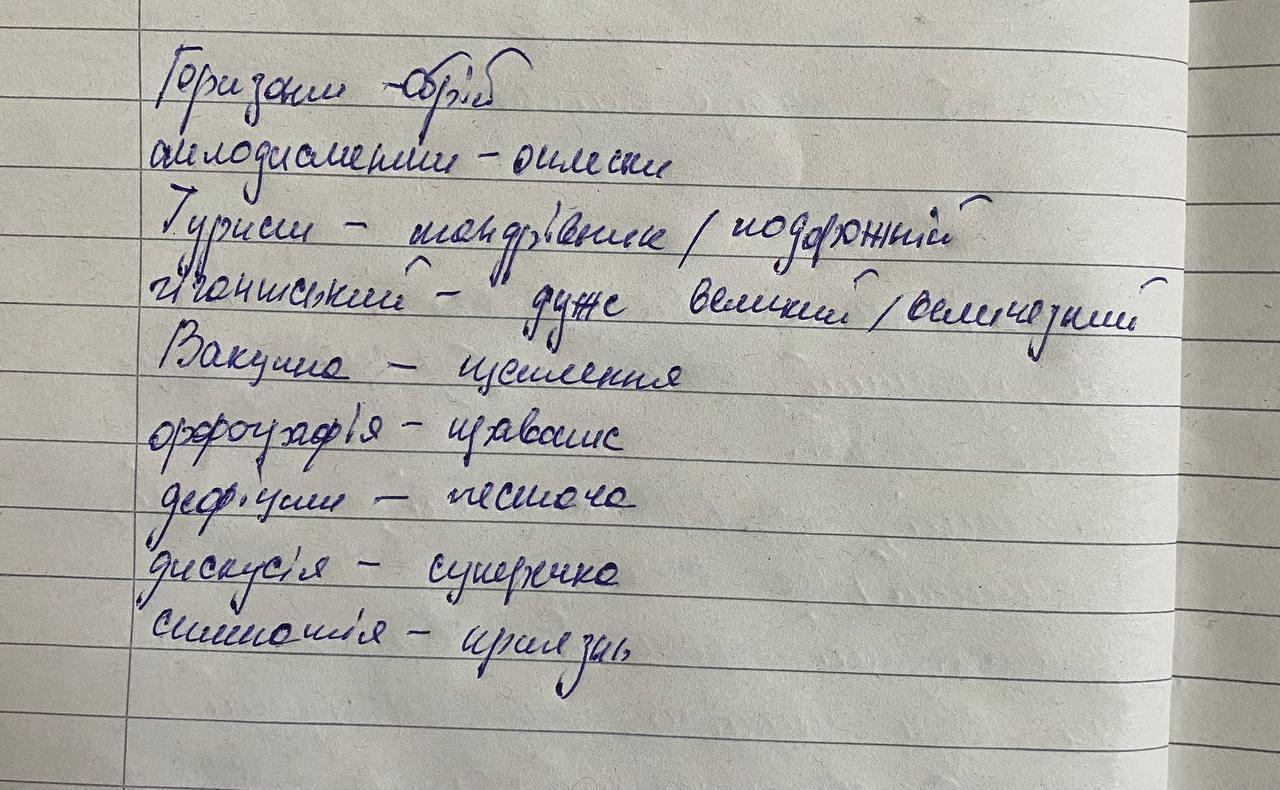 Горизонт - обрій
аплодисменти - оплески
Турист - мандрівник / подорожній
гігантський - дуже великий / величезний
Вакцина - щеплення
орфографія - правопис
дефіцит - нестача
дискусія - суперечка
симпатія - приязнь